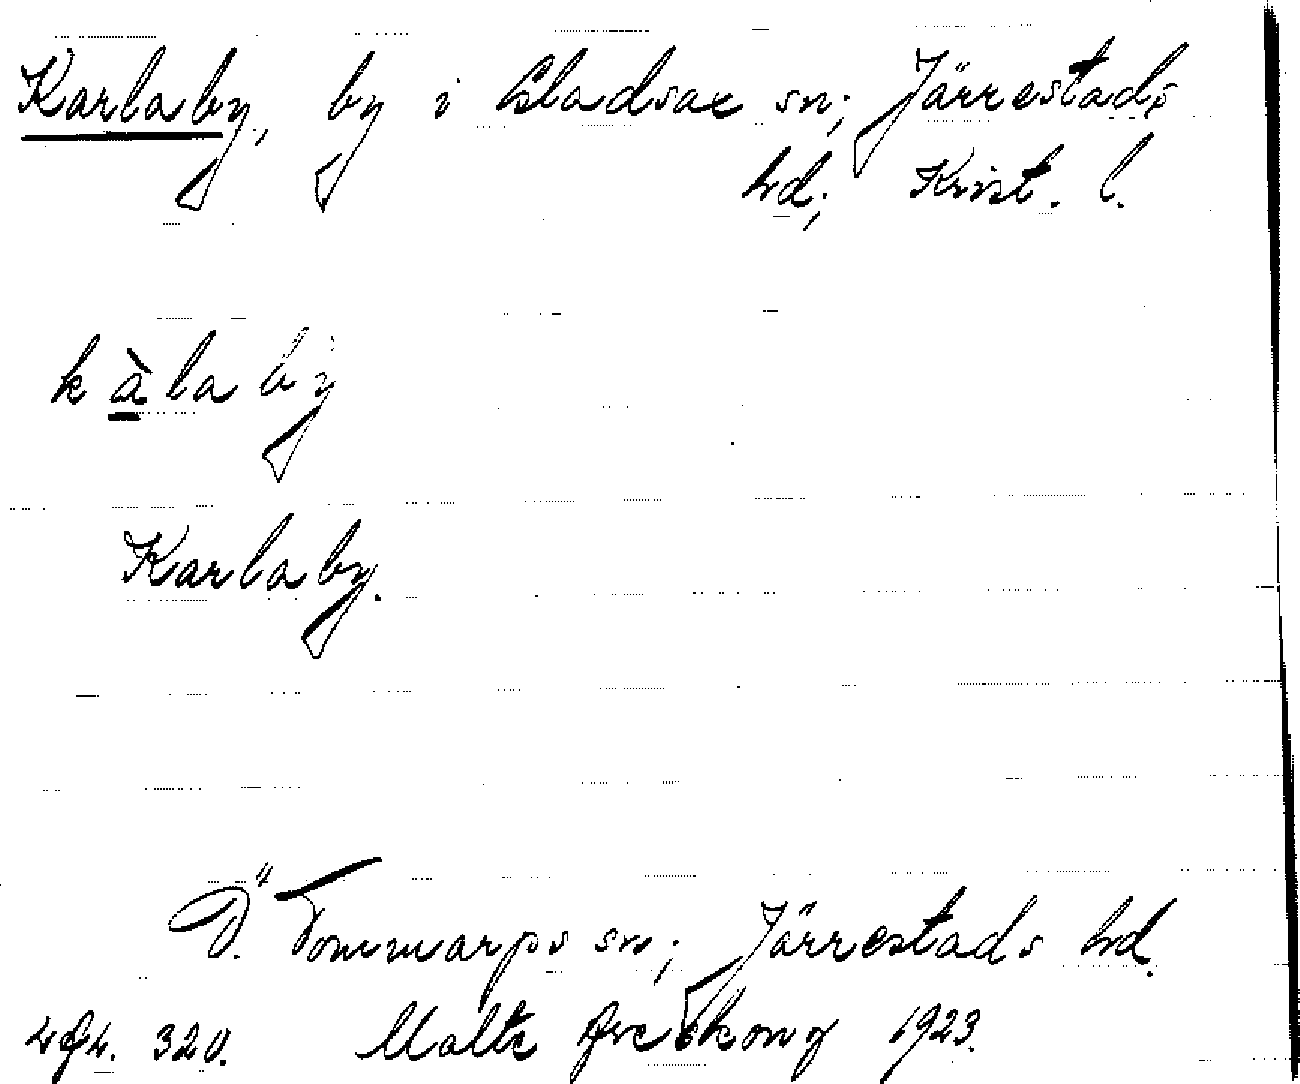 Karlaby, by i Gladsax sn; Järrestads
hd; Krist. l.
kàlaby
Karlaby.
Ö. Tommarps sn; Järrestads hd.
320. Malte 1923.